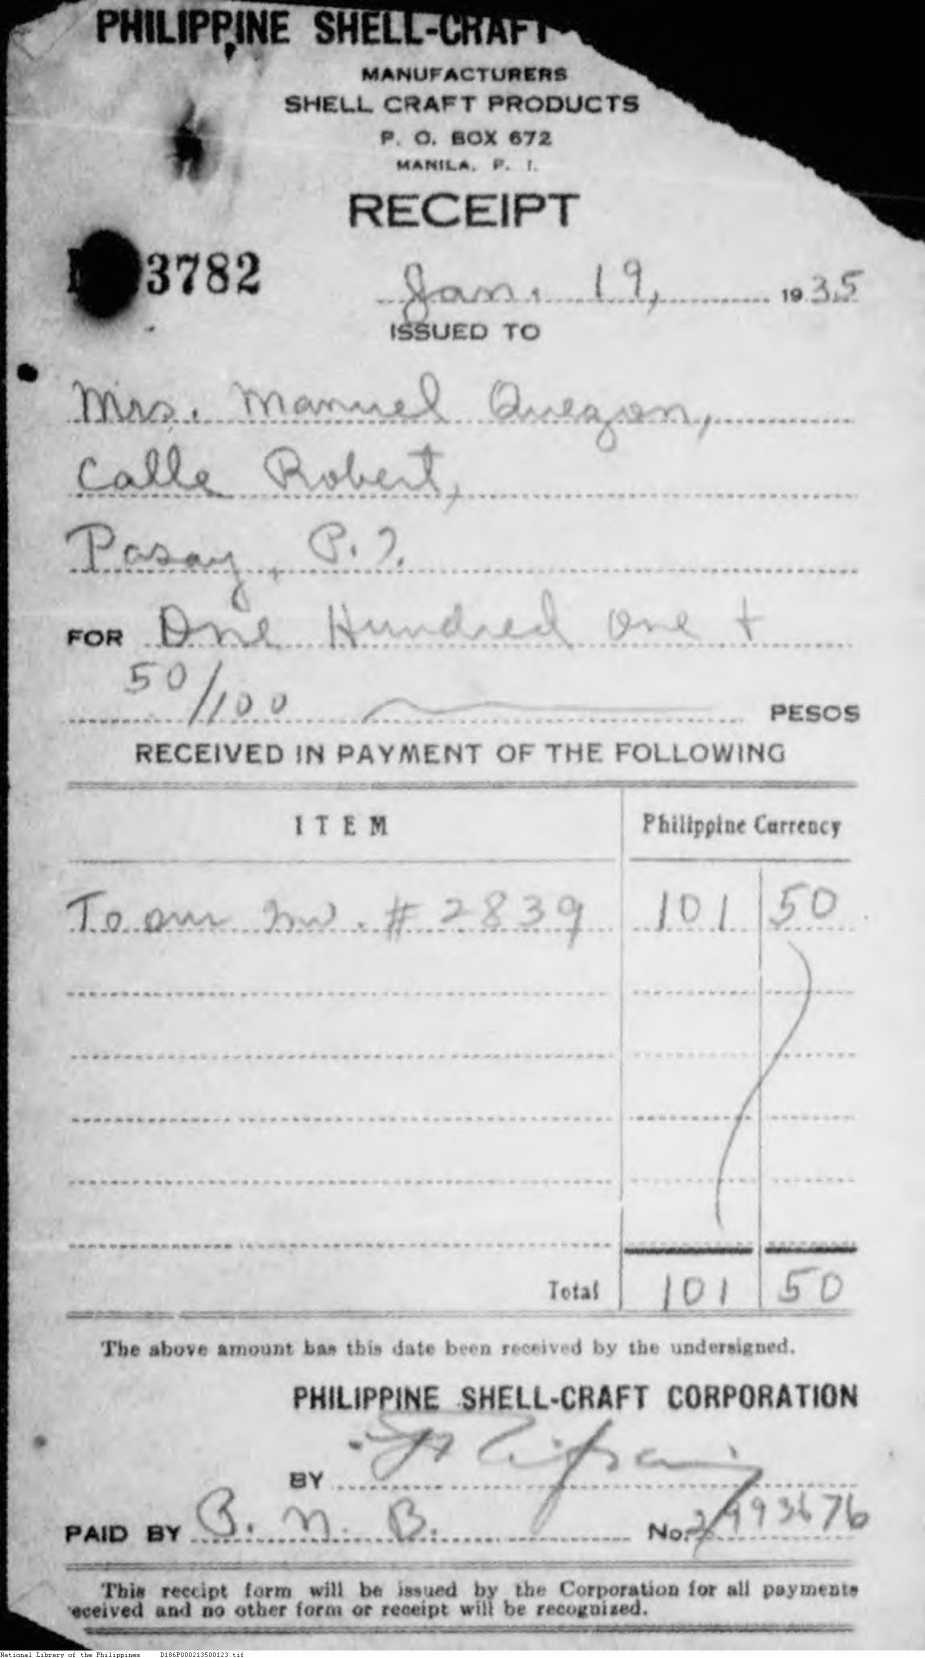 PHILIPPINE SHELL-CRAFT
MANUFACTURERS
SHELL CRAFT PRODUCTS
P. O. BOX 672
MANILA, P. I.
RECEIPT
3782
Jan. 19, 1935
ISSUED TO
Mrs. Manuel Quezon,
Calle Robert,
Pasay, P.I.
FOR One Hundred One +
50/100 PESOS
RECEIVED IN PAYMENT OF THE FOLLOWING
ITEM Philippine Currency
To our Inv. # 2839 101 50
Total 101 50
The above amount has this date been received by the undersigned.
PHILIPPINE SHELL-CRAFT CORPORATION
BY
PAID BY P. N. B. No.
This receipt form will be issued by the Corporation for all payments
eceived and no other form or receipt will be recognized.
National Library of the Philippines D186P000213500123.tif